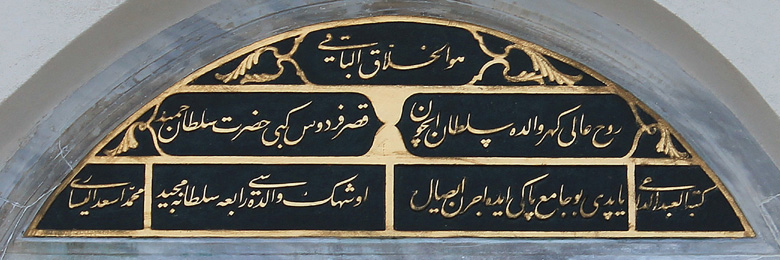 هو الخلاق الباقي
روح عالی گهر والده سلطان ایچون قصر فردوس کبی حضرت سلطان حمید
کتبه العبد الداعی یاپدی بو جامع پاکی ایده اجرن ایصال او شهک والده سی رابعه سلطانه مجید محمد اسعد الیساری